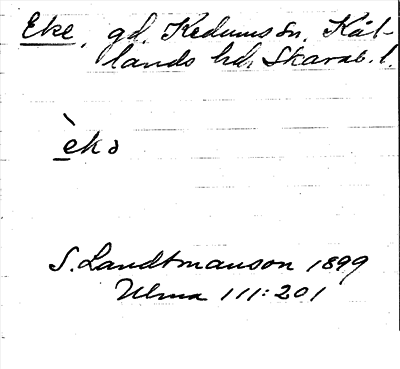 Eke, gd. Kedums sn. Kål-
lands hd. Skarab. l.
èkə
S. Landtmanson 1899
Ulma 111:201